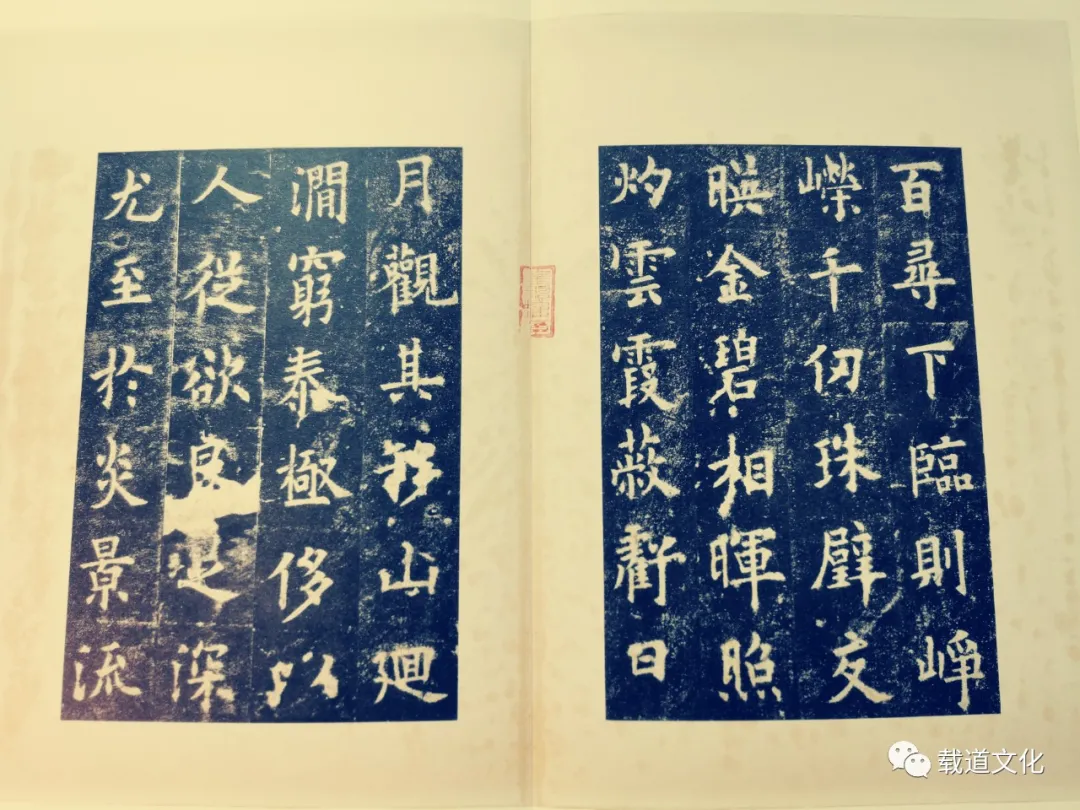 百尋下臨則崢
嶸千仞珠璧交
暎金碧相暉照
灼雲霞蔽虧日
月觀其移山迴
澗窮泰極侈以
人從欲良足深
尤至於炎景流
载道文化